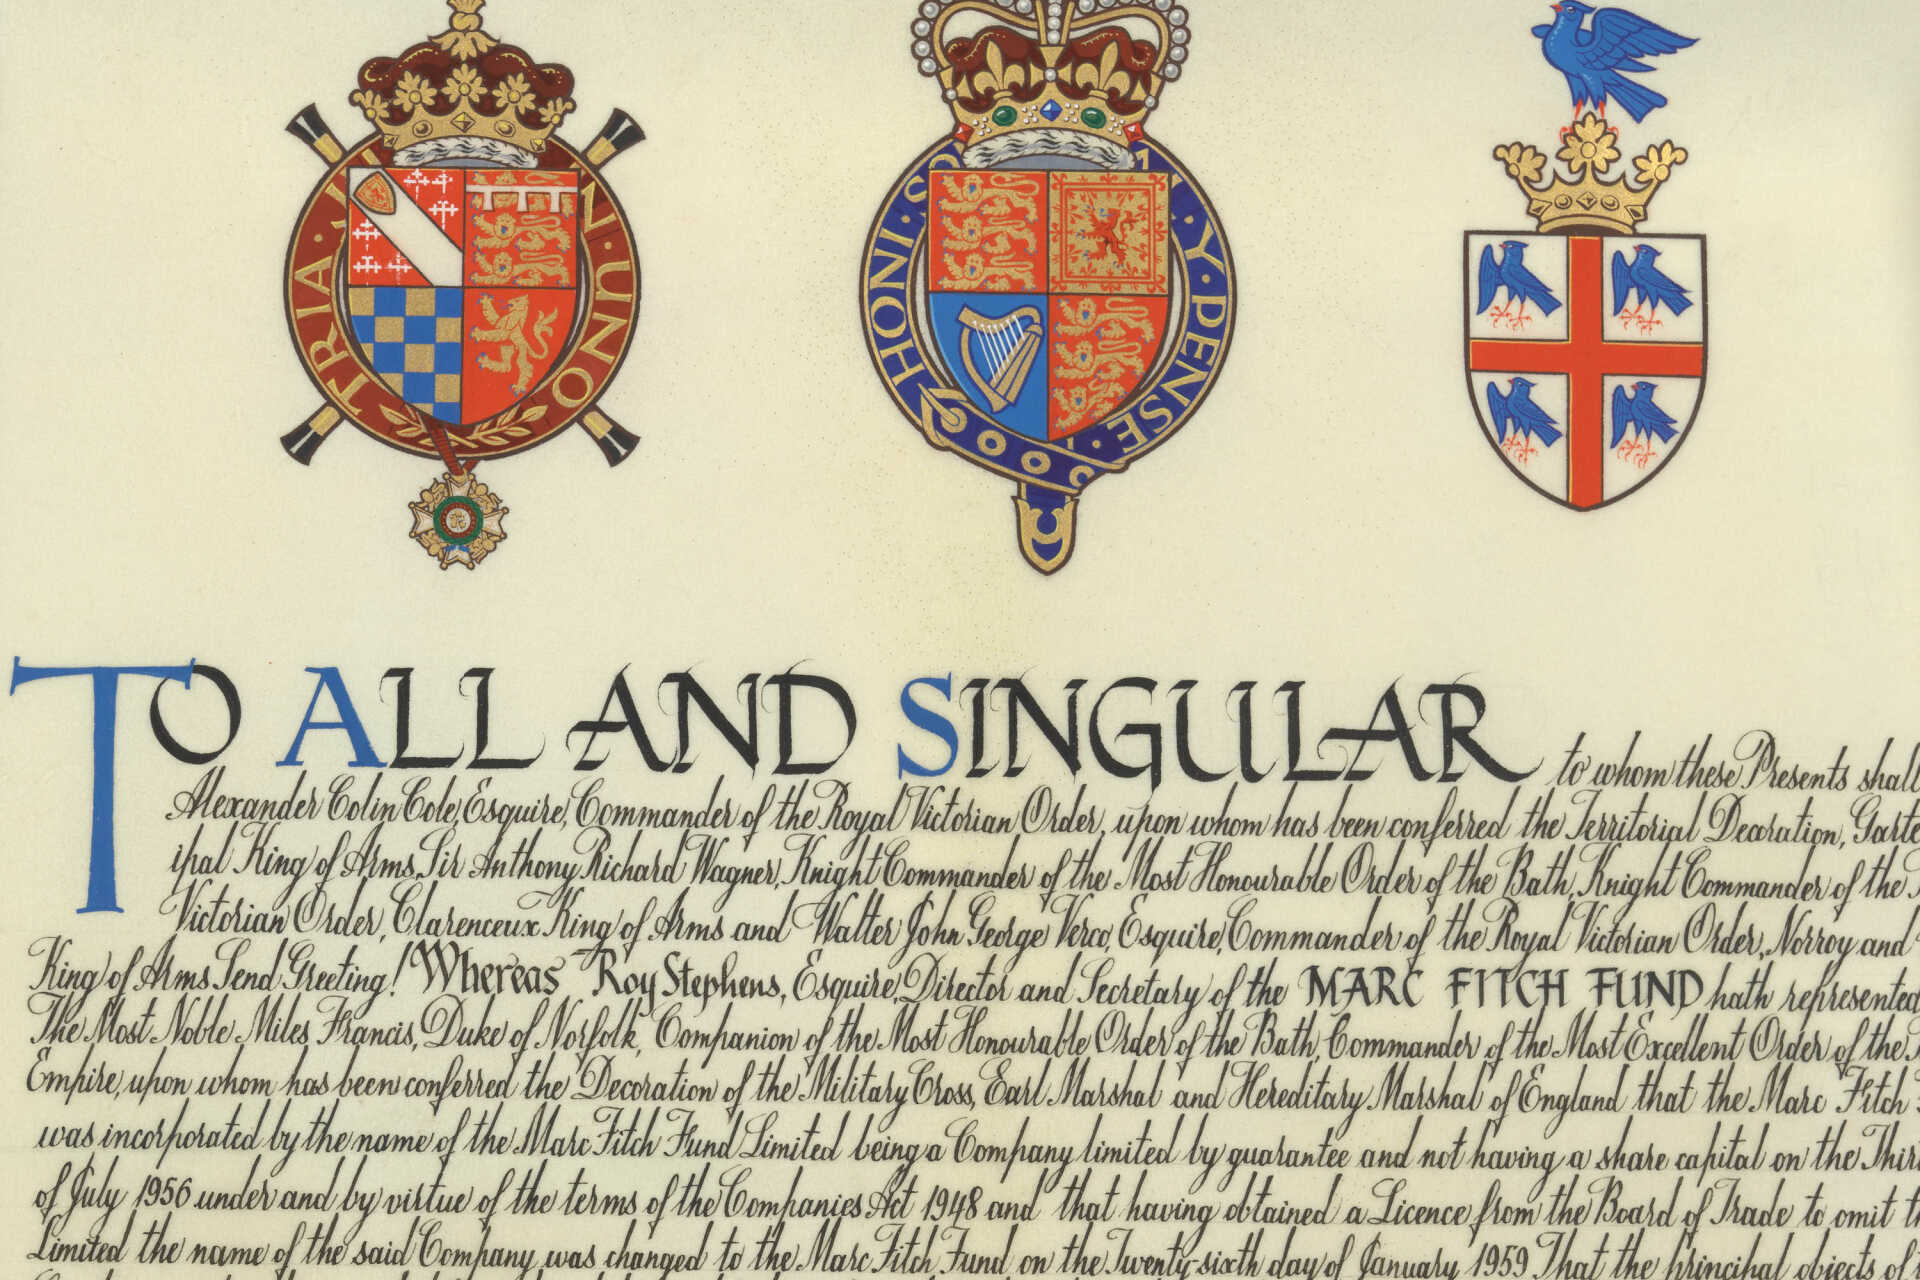 TRIA · IN · UNO
HONI · SO Y · PENSE ·
TO ALL AND SINGULAR to whom these Presents shall
Alexander Colin Cole, Esquire, Commander of the Royal Victorian Order, upon whom has been conferred the Territorial Decoration, Garte
ipal King of Arms, Sir Anthony Richard Wagner, Knight Commander of the Most Honourable Order of the Bath, Knight Commander of the
Victorian Order, Clarenceux King of Arms and Walter John George Verco, Esquire, Commander of the Royal Victorian Order, Norroy and
King of Arms Send Greeting! Whereas Roy Stephens, Esquire, Director and Secretary of the MARC FITCH FUND hath represented
The Most Noble Miles Francis, Duke of Norfolk, Companion of the Most Honourable Order of the Bath, Commander of the Most Excellent Order of the
Empire, upon whom has been conferred the Decoration of the Military Cross, Earl Marshal and Hereditary Marshal of England that the Marc Fitch
was incorporated by the name of the Marc Fitch Fund Limited being a Company limited by guarantee and not having a share capital on the Thir
of July 1956 under and by virtue of the terms of the Companies Act 1948 and that having obtained a Licence from the Board of Trade to omit
Limited the name of the said Company was changed to the Marc Fitch Fund on the Twenty-sixth day of January 1959 That the principal objects of